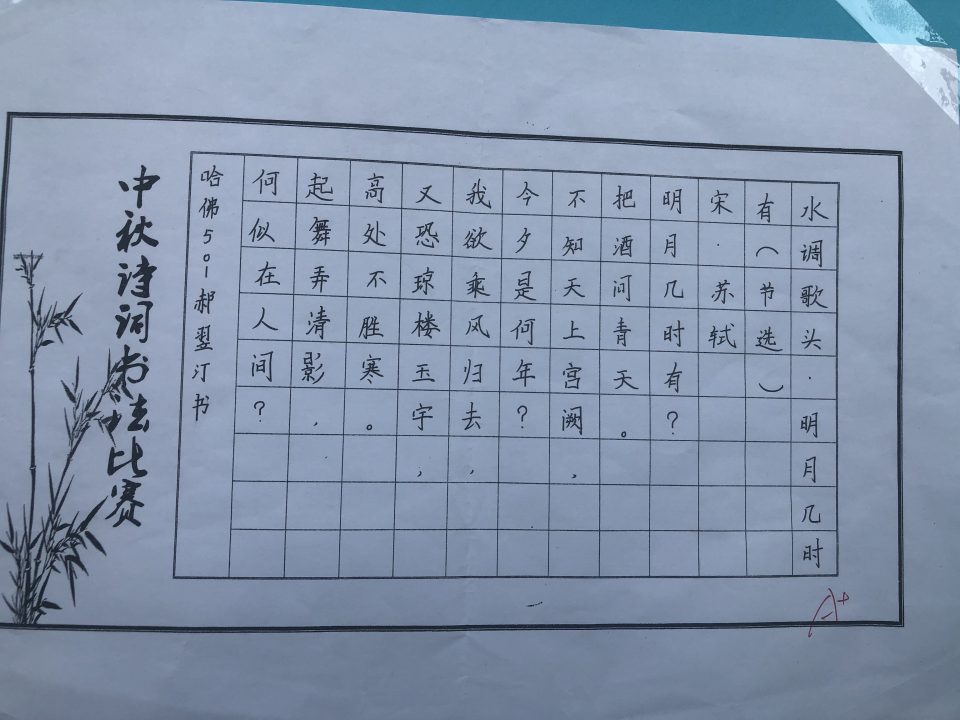 水调歌头·明月几时
有（节选）
宋·苏轼
明月几时有？
把酒问青天。
不知天上宫阙，
今夕是何年？
我欲乘风归去，
又恐琼楼玉宇，
高处不胜寒。
起舞弄清影，
何似在人间？
哈佛501郝翌汀书
中秋诗词书法比赛
A+